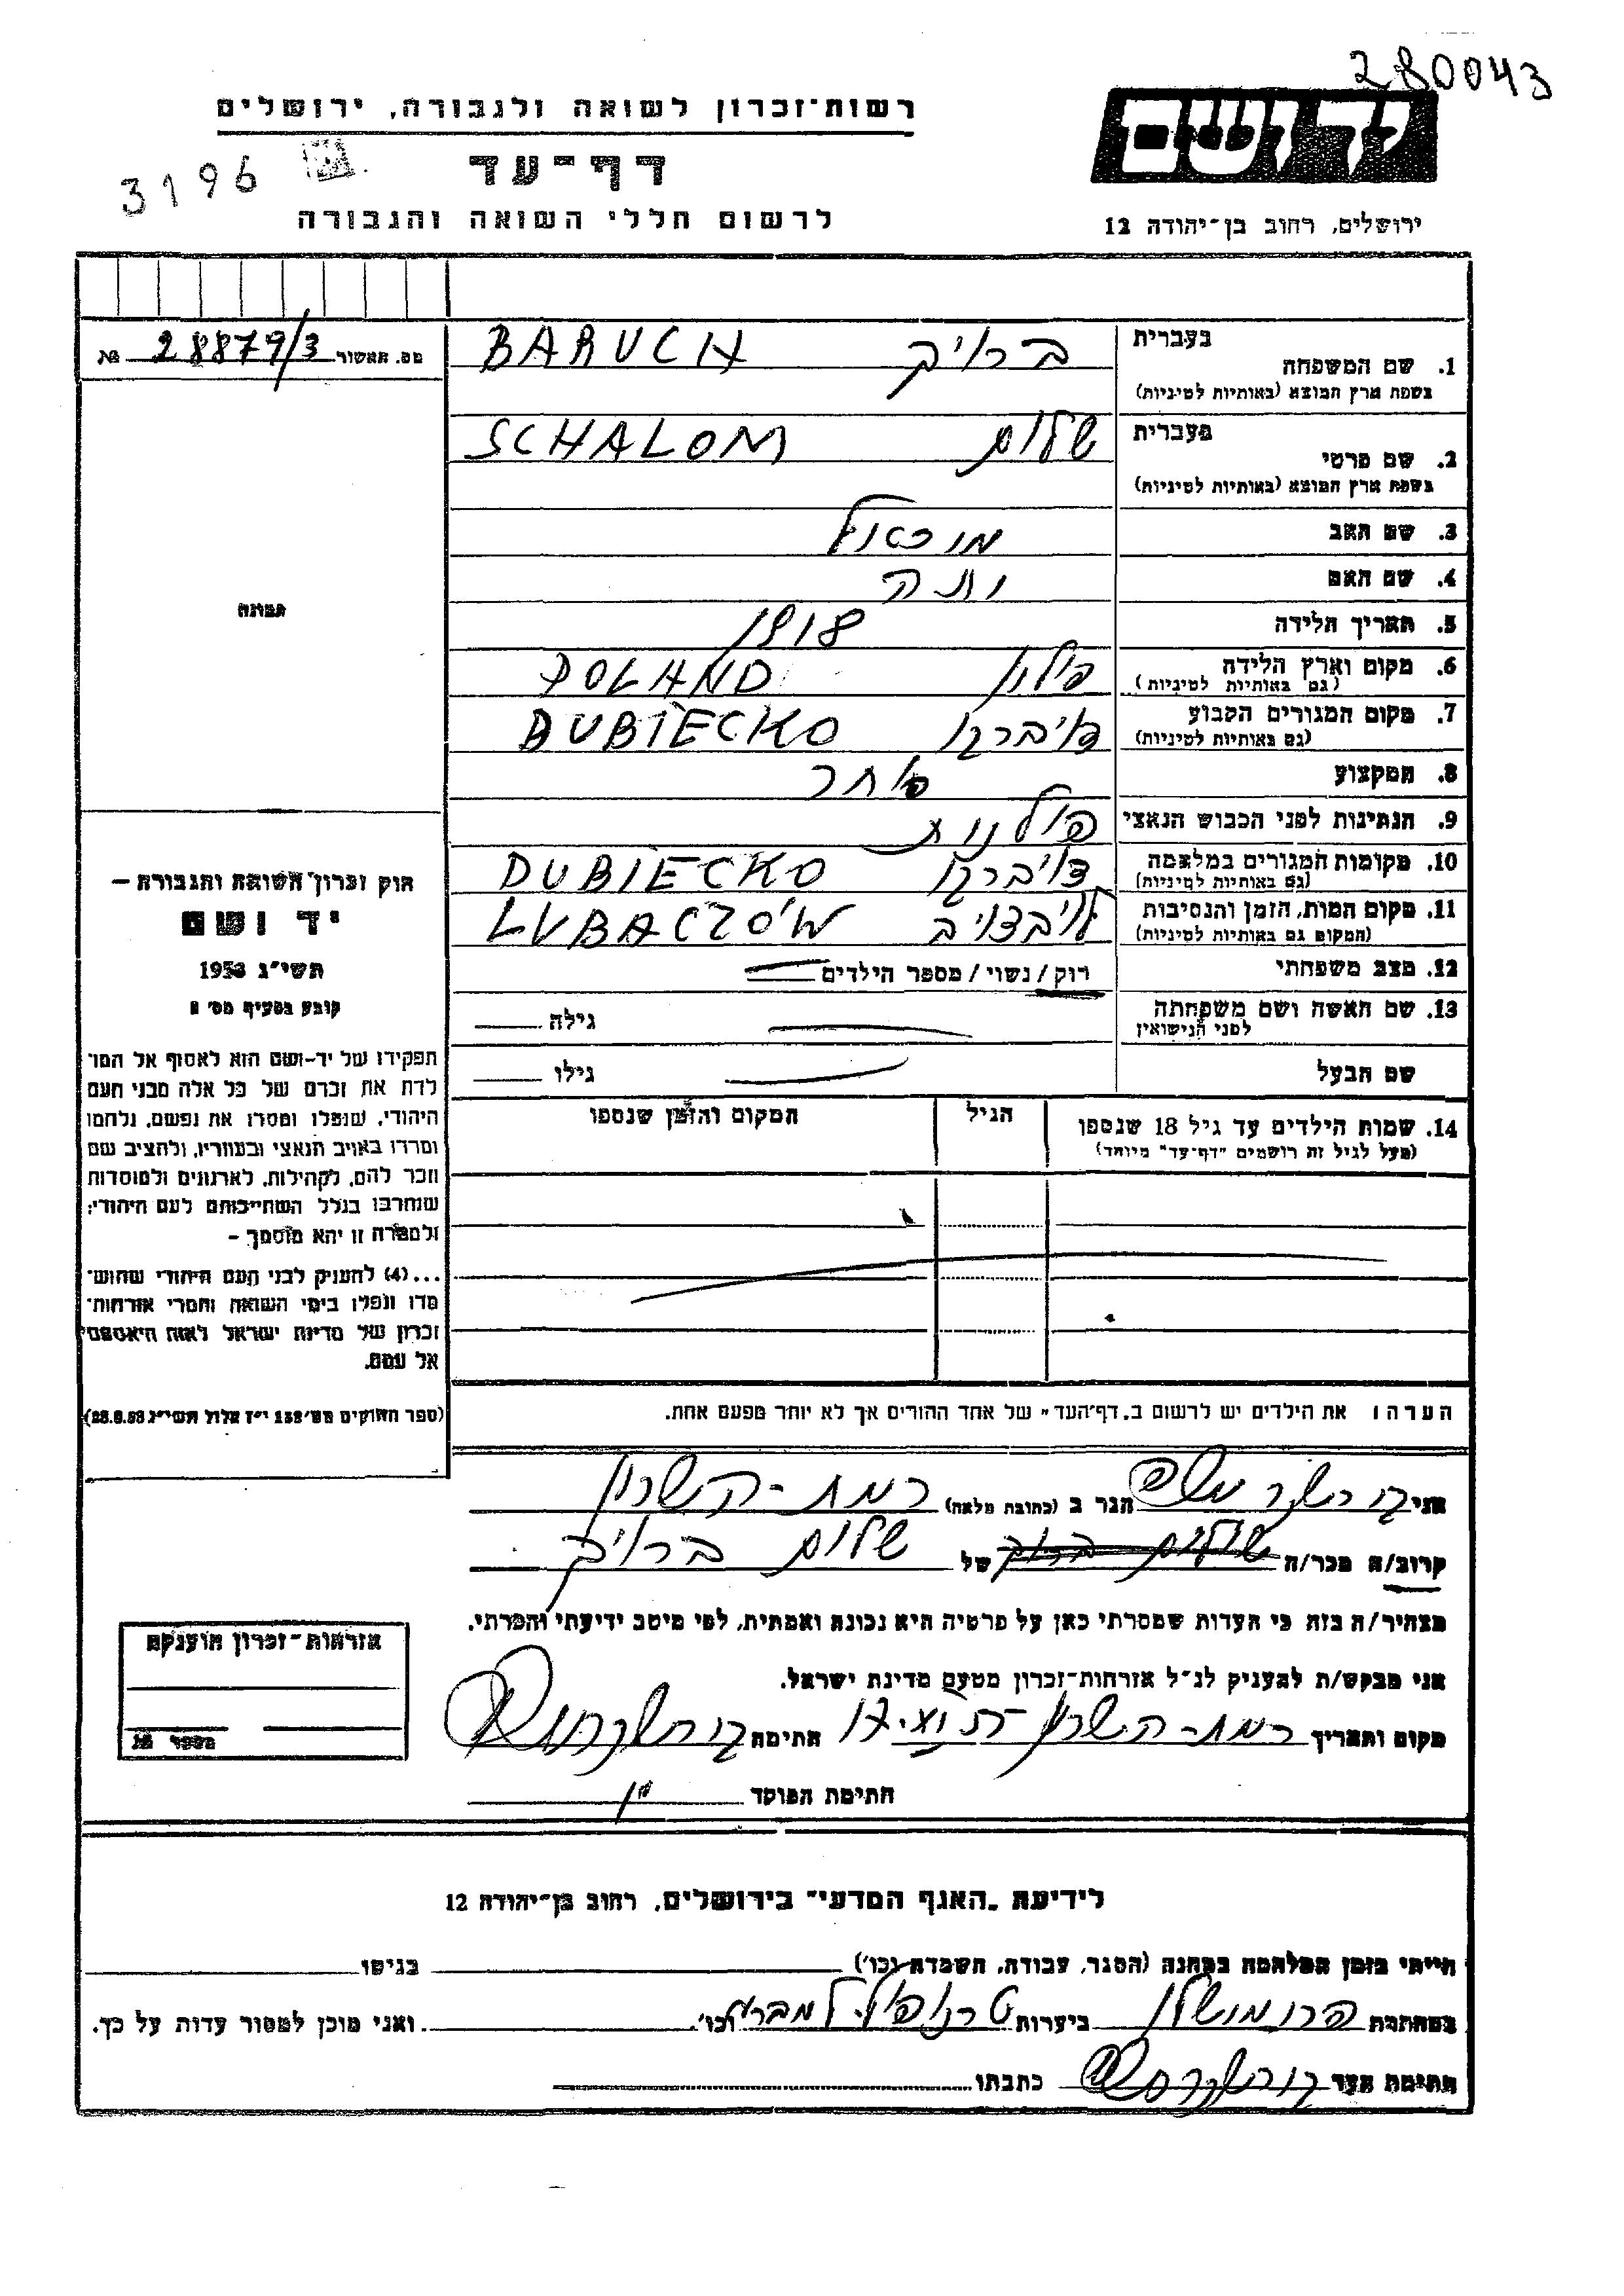 280043
רשות־זכרון לשואה ולגבורה, ירושלים
יד ושם
3196
דף־עד
לרשום חללי השואה והגבורה
ירושלים, רחוב בן־יהודה 12
מס. האשור 28879/3 №
בעברית
1. שם המשפחה ברוך BARUCH
בשפת ארץ המוצא (באותיות לטיניות)
בעברית
2. שם פרטי שלום SCHALOM
בשפת ארץ המוצא (באותיות לטיניות)
3. שם האב
4. שם האם
5. תאריך הלידה 1918
6. מקום וארץ הלידה פולין POLAND
(גם באותיות לטיניות)
7. מקום המגורים הקבוע DUBIECKO
(גם באותיות לטיניות)
8. המקצוע סוחר
9. הנתינות לפני הכבוש הנאצי פולנית
10. מקומות המגורים במלחמה DUBIECKO
(גם באותיות לטיניות)
11. מקום המות, הזמן והנסיבות LUBACZÓW
(המקום גם באותיות לטיניות)
12. מצב משפחתי רוק / נשוי / מספר הילדים
13. שם האשה ושם משפחתה גילה
לפני הנישואין
שם הבעל גילו
14. שמות הילדים עד גיל 18 שנספו הגיל המקום והזמן שנספו
(מעל לגיל זה רושמים "דף־עד" מיוחד)
תמונה
חוק זכרון השואה והגבורה —
יד ושם
תשי"ג 1953
קובע בסעיף מס' 2
תפקידו של יד-ושם הוא לאסוף אל המו־
לדת את זכרם של כל אלה מבני העם
היהודי, שנפלו ומסרו את נפשם, נלחמו
ומרדו באויב הנאצי ובעוזריו, ולהציב שם
וזכר להם, לקהילות, לארגונים ולמוסדות
שנחרבו בגלל השתייכותם לעם היהודי;
ולמטרה זו יהא מוסמך —
...(4) להעניק לבני העם היהודי שהוש־
מדו ונפלו בימי השואה והמרי אזרחות־
זכרון של מדינת ישראל לאות היאספם
אל עמם.
(ספר החוקים מס' 132 י"ז אלול תשי"ג 28.8.53)
הערה: את הילדים יש לרשום ב„דף־העד" של אחד ההורים אך לא יותר מפעם אחת.
אני הגר ב (כתובת מלאה) רמת-השרון
קרוב/ה מכר/ה של שלום ברוך
מצהיר/ה בזה כי העדות שמסרתי כאן על פרטיה היא נכונה ואמתית, לפי מיטב ידיעתי והכרתי.
אני מבקש/ת להעניק לנ"ל אזרחות־זכרון מטעם מדינת ישראל.
מקום ותאריך רמת-השרון חתימה
חתימת הפוקד
אזרחות־זכרון הוענקה
מספר №
לידיעת „האגף המדעי" בירושלים, רחוב בן־יהודה 12
הייתי בזמן המלחמה במחנה (הסגר, עבודה, השמדה וכו') בגיטו
במחתרת ביערות וכו'. ואני מוכן למסור עדות על כך.
חתימת העד כתבתו